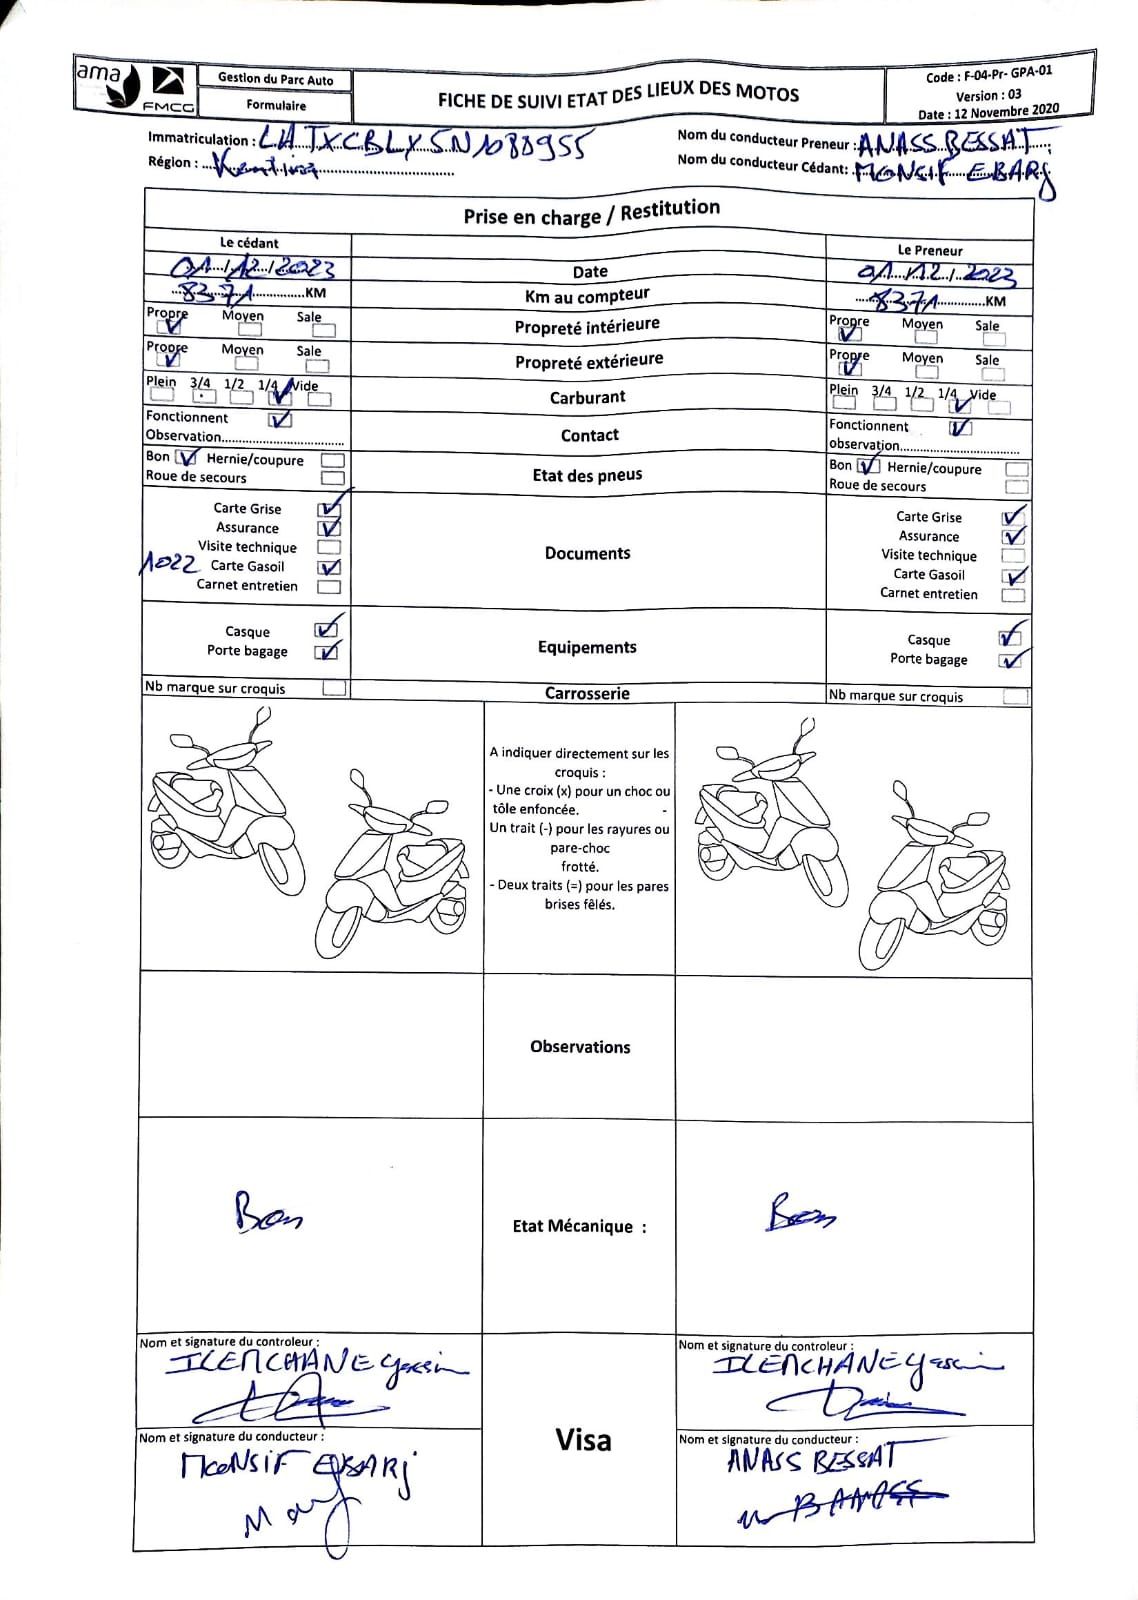 ama
FMCG
Gestion du Parc Auto
Formulaire
FICHE DE SUIVI ETAT DES LIEUX DES MOTOS
Code : F-04-Pr- GPA-01
Version : 03
Date : 12 Novembre 2020
Immatriculation : LATXCBLX5N1088955
Nom du conducteur Preneur : ANASS BESSAT
Région :
Nom du conducteur Cédant: MONSIF EBARj
Prise en charge / Restitution
Le cédant
Le Preneur
01/12/2023
Date
01/12/2023
8371 KM
Km au compteur
8371 KM
Propre Moyen Sale
Propreté intérieure
Propre Moyen Sale
Propre Moyen Sale
Propreté extérieure
Propre Moyen Sale
Plein 3/4 1/2 1/4 Vide
Carburant
Plein 3/4 1/2 1/4 Vide
Fonctionnent
Observation
Contact
Fonctionnent
observation
Bon Hernie/coupure
Roue de secours
Etat des pneus
Bon Hernie/coupure
Roue de secours
Carte Grise
Assurance
Visite technique
1022 Carte Gasoil
Carnet entretien
Documents
Carte Grise
Assurance
Visite technique
Carte Gasoil
Carnet entretien
Casque
Porte bagage
Equipements
Casque
Porte bagage
Nb marque sur croquis
Carrosserie
Nb marque sur croquis
A indiquer directement sur les
croquis :
- Une croix (x) pour un choc ou
tôle enfoncée. -
Un trait (-) pour les rayures ou
pare-choc
frotté.
- Deux traits (=) pour les pares
brises fêlés.
Observations
Bon
Etat Mécanique :
Bon
Nom et signature du controleur :
ILEMCHANE Yassin
Nom et signature du controleur :
ILEMCHANE Yassin
Nom et signature du conducteur :
MONSIF EBARj
Visa
Nom et signature du conducteur :
ANASS BESSAT